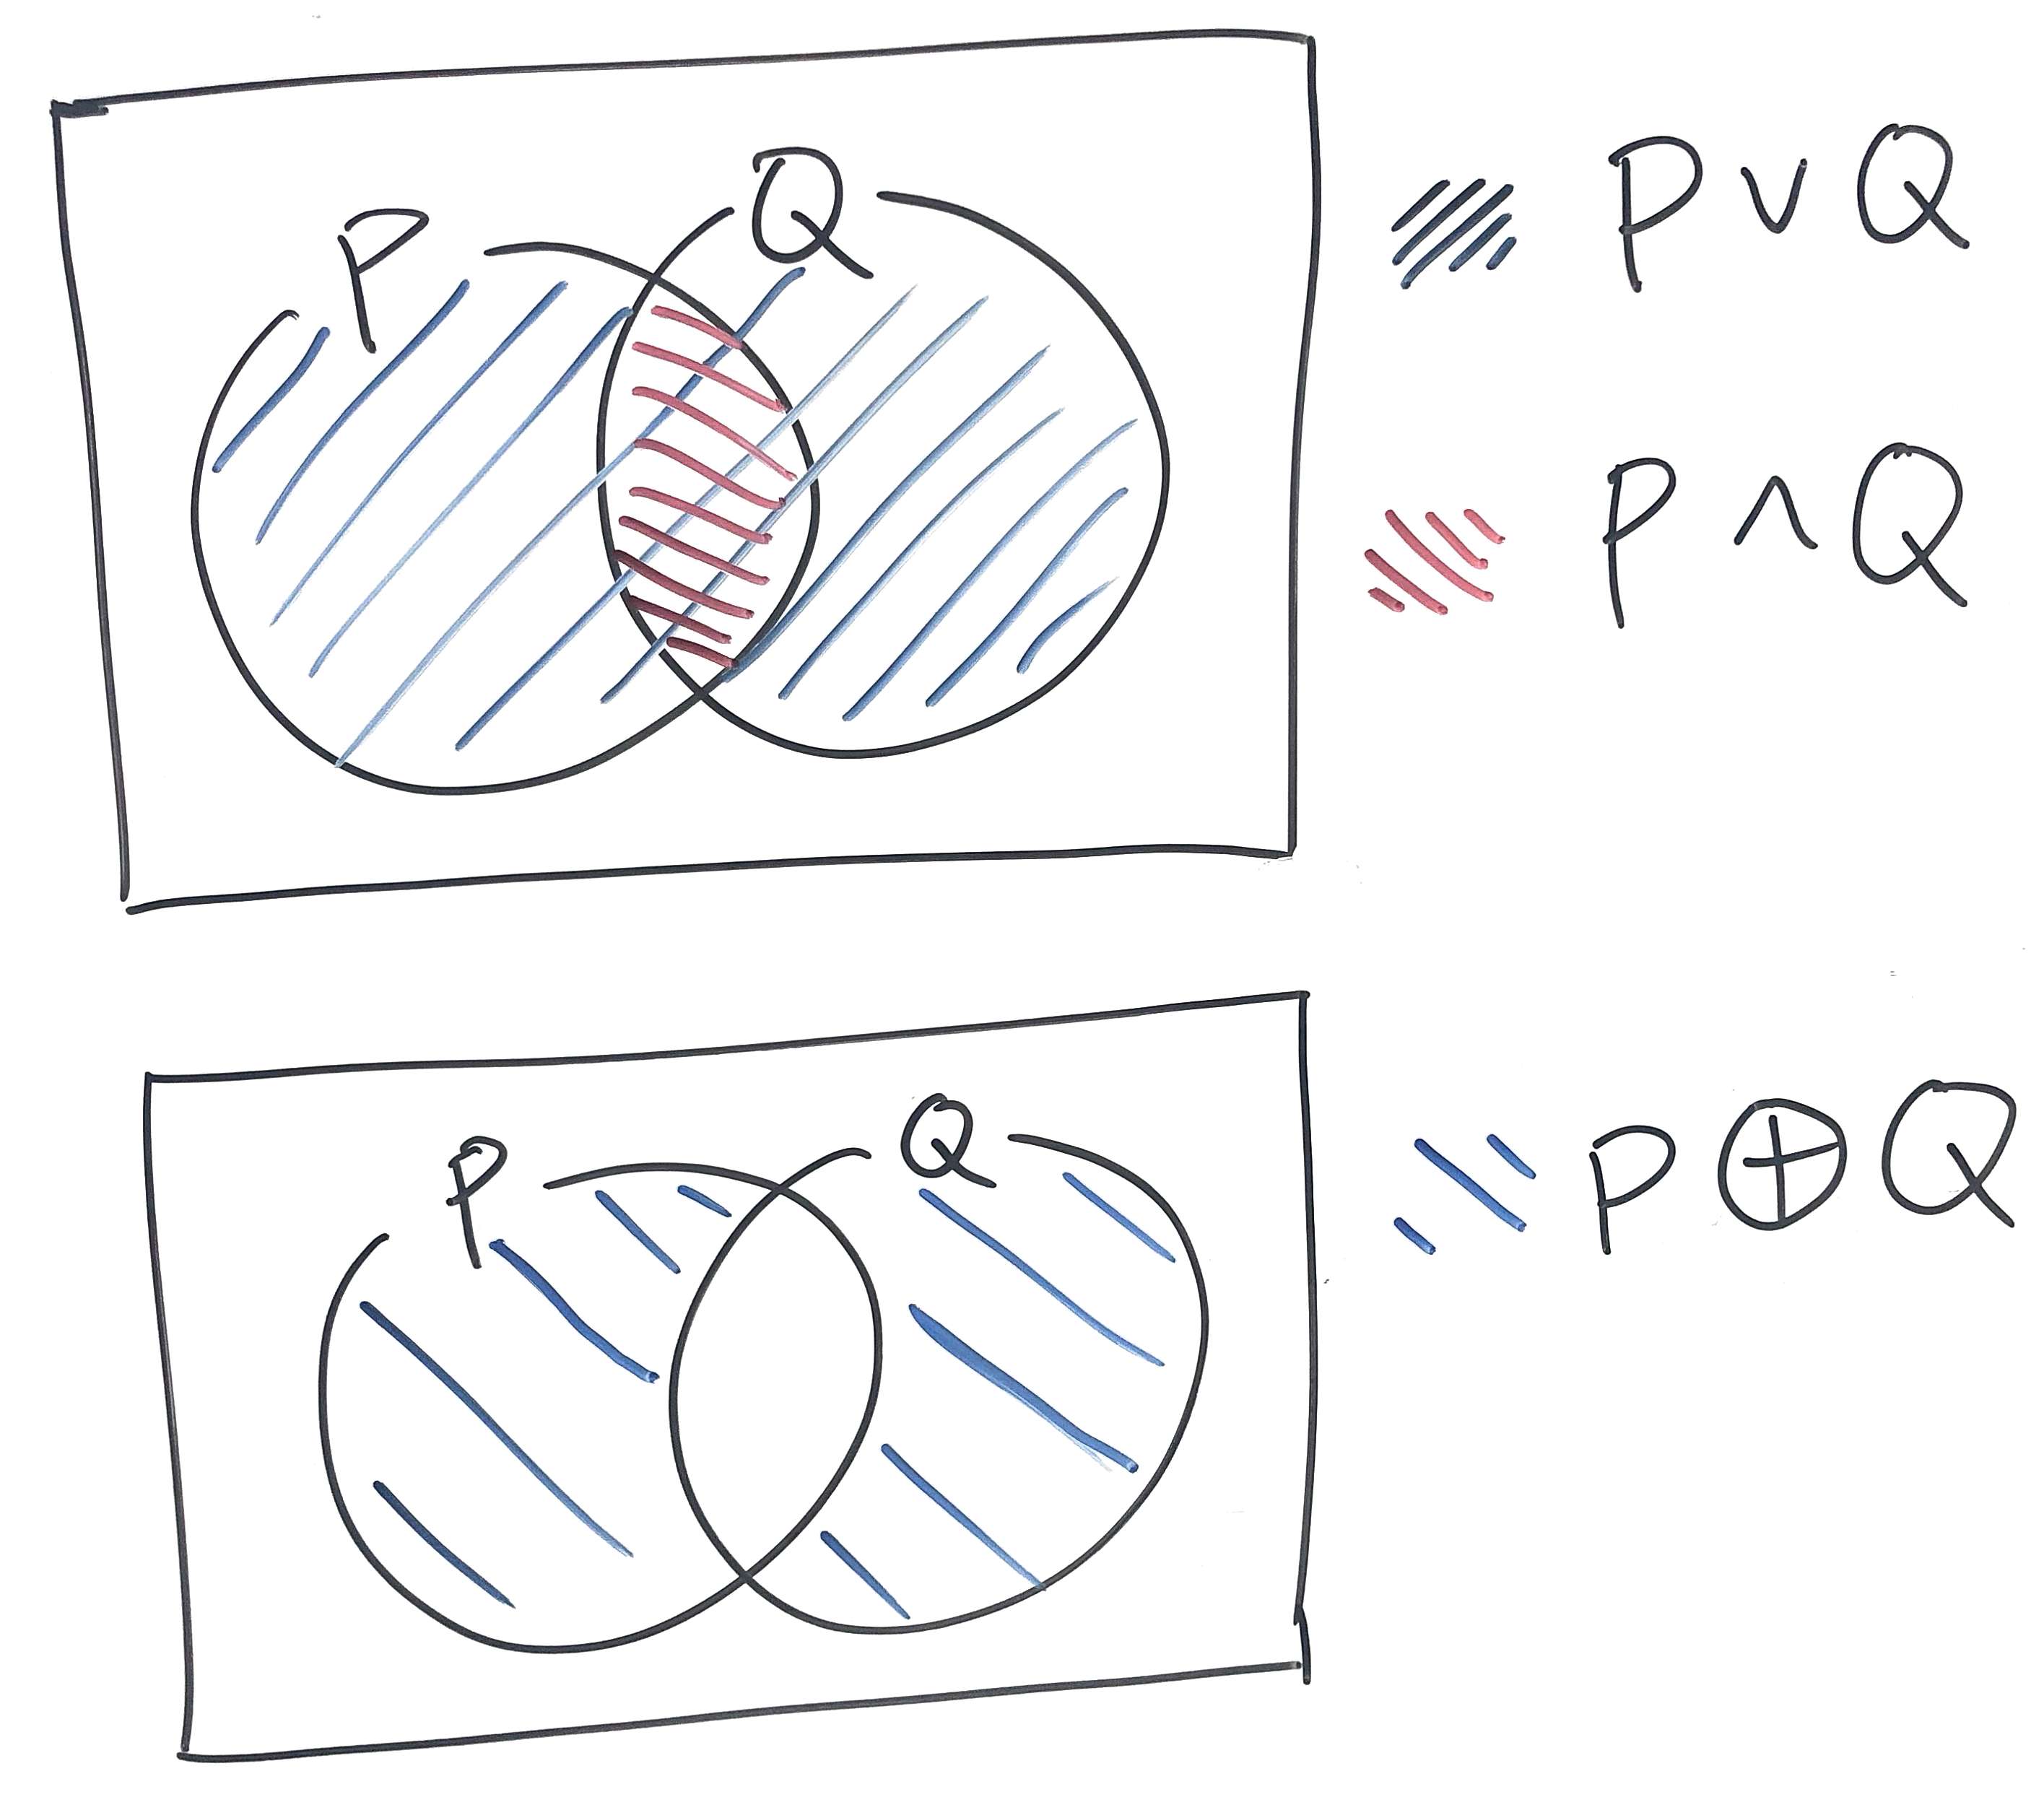 P Q
P ∨ Q
P ∧ Q
P Q
P ⊕ Q